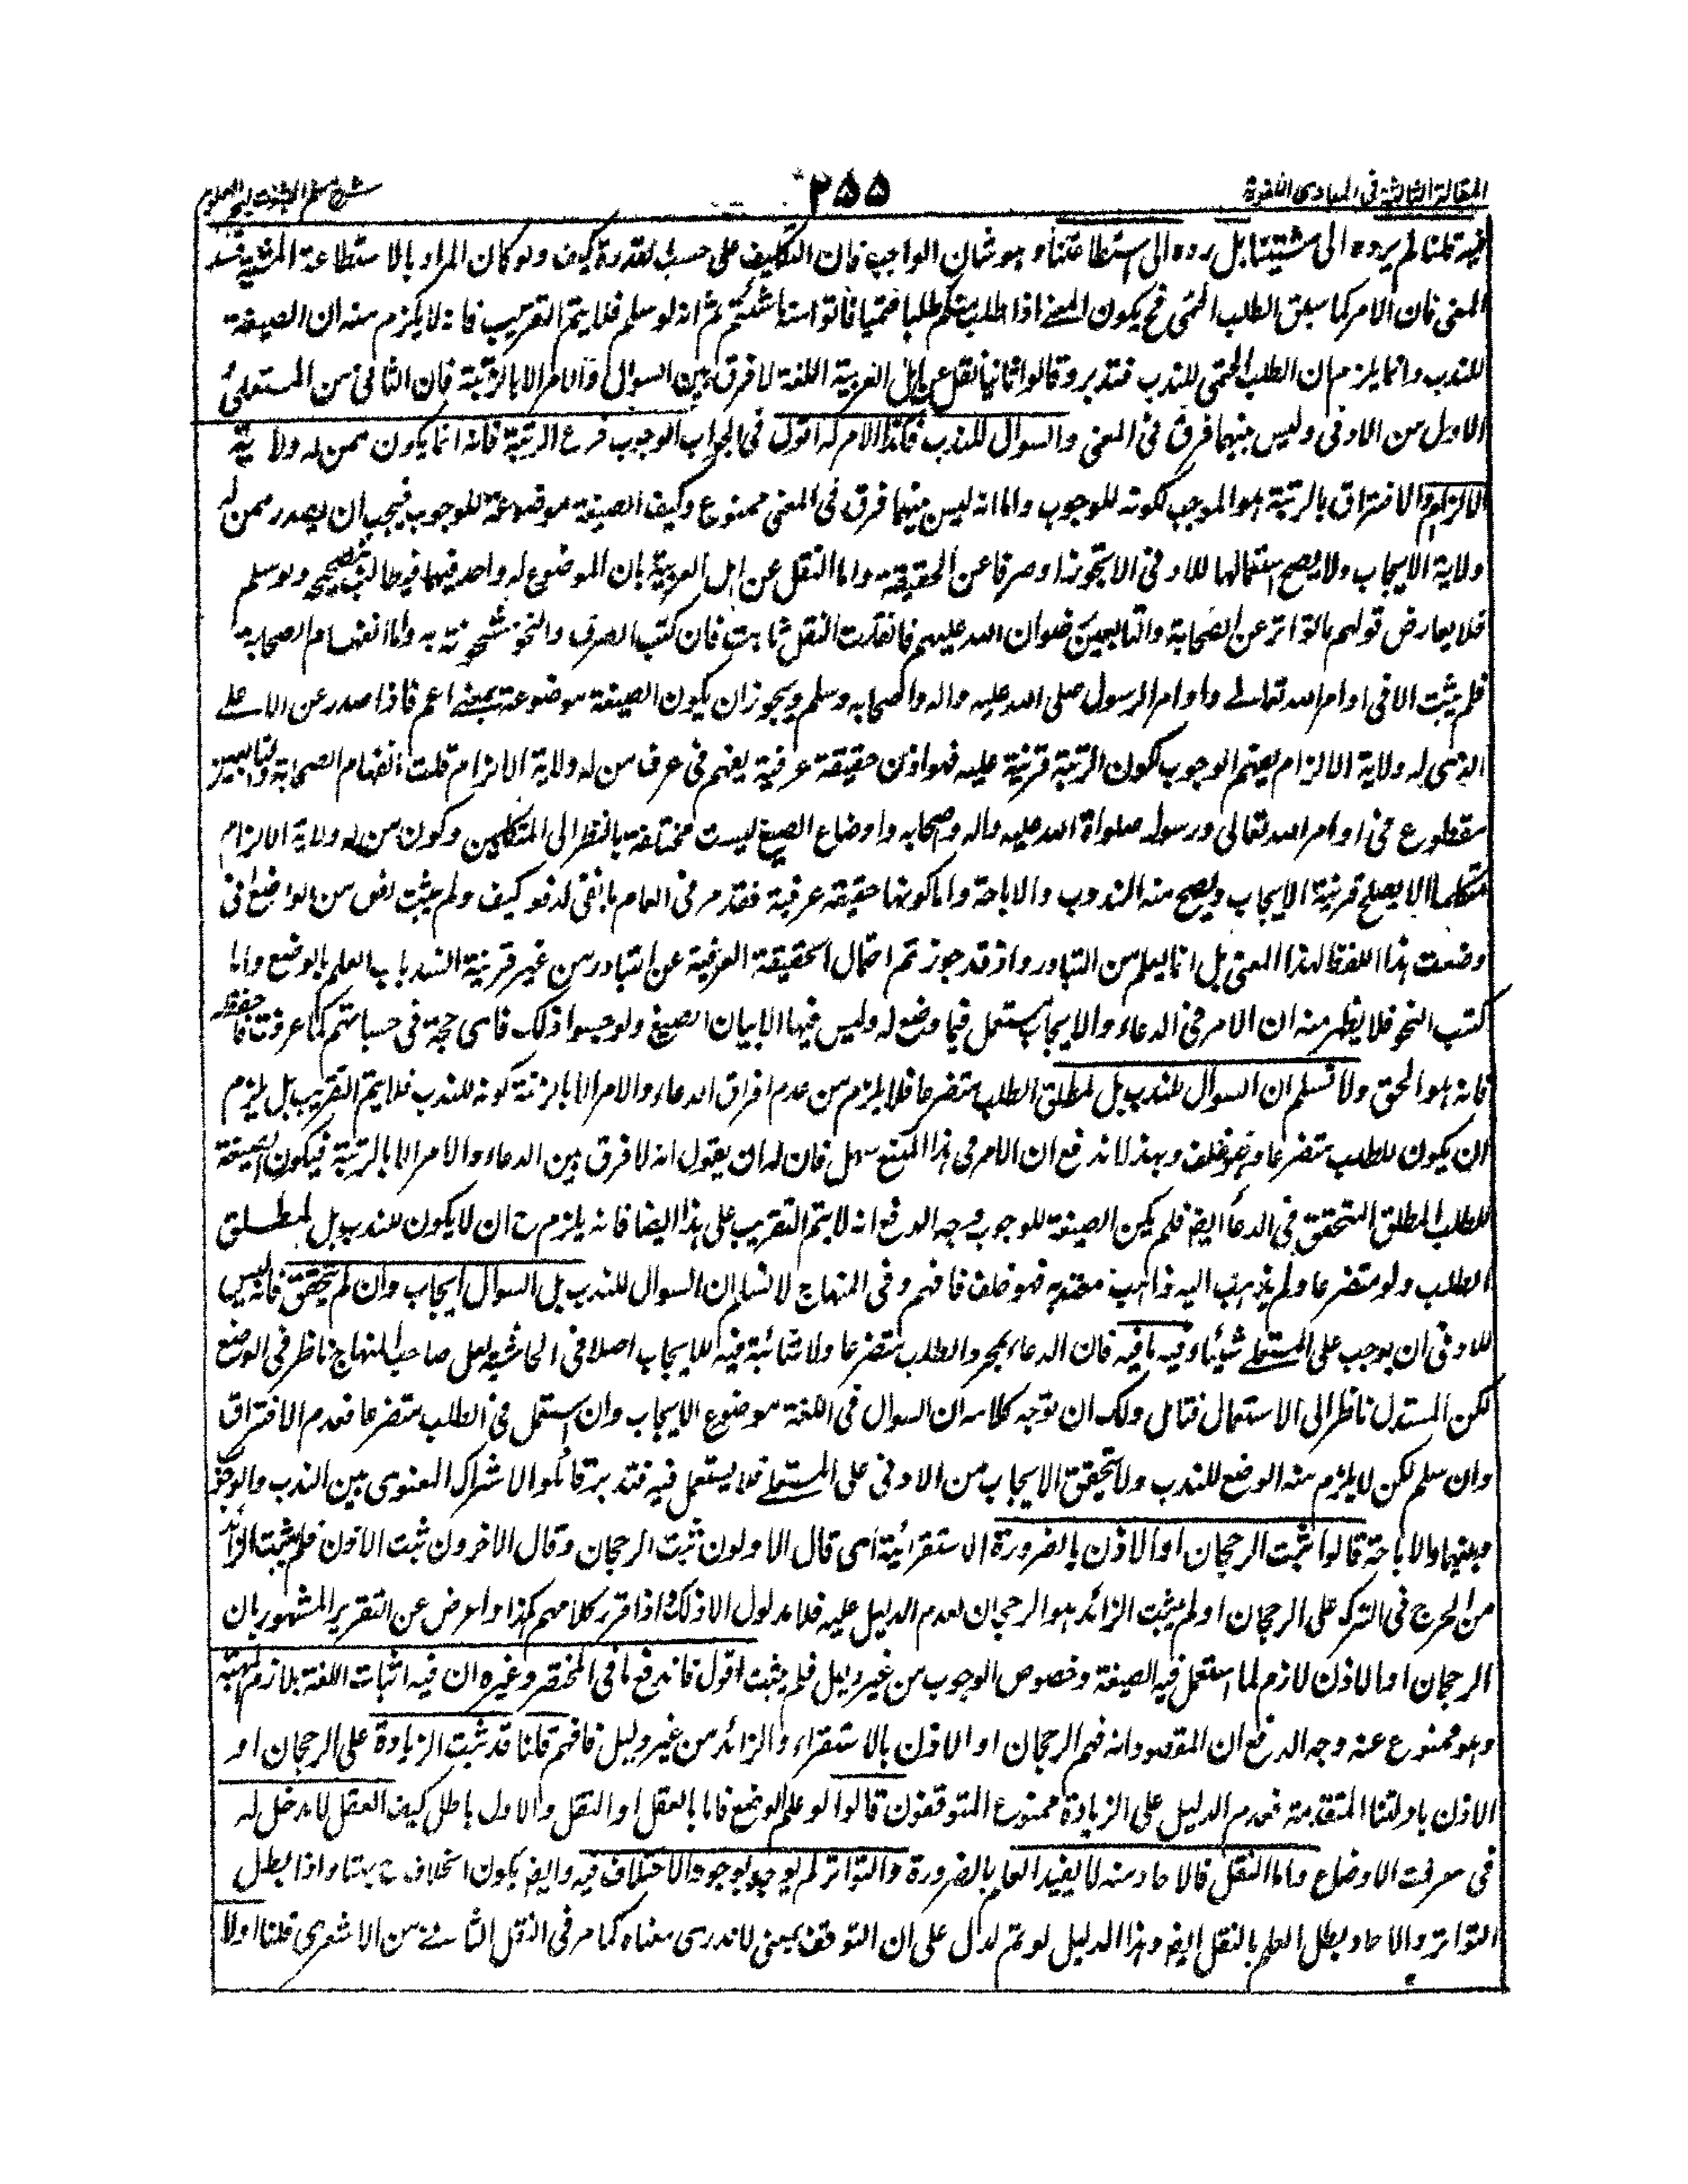 المقالة الثالثة فى المبادى اللغوية
٢٥٥
شرح مسلم الثبوت لبحر العلوم
فيه قلنا لم يرده الى مشيتنا بل رده الى استطاعتنا وهو شان الواجب فان التكليف على حسب القدرة كيف ولو كان المراد بالاستطاعة المشية فسد
المعنى فان الامر كما سبق الطلب الحتمى فح يكون المعنى اذا طلبت منكم طلبا حتميا فاتوا منه ما شئتم ثم انه لو سلم فلا يتم التقريب فانه لا يلزم منه ان الصيغة
للندب وانما يلزم ان الطلب الحتمى للندب فتدبر وقالوا ثانيا نقل عن اهل العربية اللغة لا فرق بين السوال والامر الا بالرتبة فان الثانى من المستعلى
الاول من الادنى وليس بينهما فرق فى المعنى والسوال للندب فكذا الامر له اقول فى الجواب الوجوب فرع الرتبة فانه انما يكون ممن له ولاية
الالزام والافتراق بالرتبة هو الموجب لكونه للوجوب واما انه ليس بينهما فرق فى المعنى ممنوع وكيف الصيغة موضوعة للوجوب فيجب ان يصدر ممن له
ولاية الايجاب ولا يصح استعمالها للادنى الا تجوزا وصرفا عن الحقيقة واما النقل عن اهل العربية بان الموضوع له واحد فيهما فيطالب بتصحيحه ولو سلم
فلا يعارض قولهم ما تواتر عن الصحابة والتابعين رضوان الله عليهم فان قلت النقل ثابت فان كتب الصرف والنحو مشحونة به واما انفهام الصحابة
فلم يثبت الا فى اوامر الله تعالى واوامر الرسول صلى الله عليه واله واصحابه وسلم ويجوز ان يكون الصيغة موضوعة بمعنى اعم فاذا صدر عن الاعلى
الذى له ولاية الالزام يفهم الوجوب لكون الرتبة قرينة عليه فهو اذن حقيقة عرفية يفهم فى عرف من له ولاية الالزام قلت انفهام الصحابة والتابعين
مقطوع فى اوامر الله تعالى ورسوله صلواة الله عليه واله وصحابه واوضاع الصيغ ليست مختلفة بالنظر الى المتكلمين وكون من له ولاية الالزام
متكلما لا يصلح قرينة الايجاب ويصح منه الندوب والاباحة واما كونها حقيقة عرفية فقد مر فى العام ما بقى لدفعه كيف ولم يثبت نص من الواضع انى
وضعت هذا اللفظ لهذا المعنى بل انما يعلم من التبادر واذ قد جوزتم احتمال الحقيقة العرفية عن التبادر من غير قرينة انسد باب العلم بالوضع واما
كتب النحو فلا يظهر منه ان الامر فى الدعاء والايجاب يستعمل فيما وضع له وليس فيها الا بيان الصيغ ولو حسبوا ذلك فاى حجة فى حسبانهم كما عرفت فاحفظه
فانه هو الحق ولا نسلم ان السوال للندب بل لمطلق الطلب متضرعا فلا يلزم من عدم افراق الدعاء والامر الا بالرتبة كونه للندب فلا يتم التقريب بل يلزم
ان يكون للطلب متضرعا وهو خلف وبهذا اندفع ان الامر فى هذا المنع سهل فان له ان يقول انه لا فرق بين الدعاء والامر الا بالرتبة فيكون الصيغة
للطلب المطلق المتحقق فى الدعاء ايض فلم يكن الصيغة للوجوب وجه الدفع انه لا يتم التقريب على هذا ايضا فانه يلزم ح ان لا يكون للندب بل لمطلق
الطلب ولو متضرعا ولم يذهب اليه ذاهب معتد به فهو خلف فافهم وفى المنهاج لا نسلم ان السوال للندب بل السوال ايجاب وان لم يتحقق فانه ليس
للادنى ان يوجب على المستعلى شيئا وفيه ما فيه فان الدعاء لمجرد الطلب متضرعا ولا شائبة فيه للايجاب اصلا فى الحاشية لعل صاحب المنهاج ناظر فى الوضع
لكن المستدل ناظر الى الاستعمال فتامل ولك ان توجه كلامه ان السوال فى اللغة موضوع الايجاب وان استعمل فى الطلب متضرعا فعدم الافتراق
وان سلم لكن لا يلزم منه الوضع للندب ولا تحقق الايجاب من الادنى على المستعلى فلا يستعمل فيه فتدبر قائلو الاشتراك المعنوى بين الندب والوجوب
وبينهما والاباحة قالوا ثبت الرجحان او الاذن بالضرورة الاستقرائية اى قال الاولون ثبت الرجحان وقال الاخرون ثبت الاذن فلم يثبت الزائد
من الحرج فى الترك على الرجحان او لم يثبت الزائد هو الرجحان لعدم الدليل عليه فلا مدلول الا ذلك واذا قرر كلامهم هكذا واعرض عن التقرير المشهور بان
الرجحان او الاذن لازم لما استعمل فيه الصيغة وخصوص الوجوب من غير دليل فلم يثبت اقول فاندفع ما فى المختصر وغيره ان فيه اثبات اللغة بلازم المهية
وهو ممنوع عنه وجه الدفع ان المقصود انه فهم الرجحان او الاذن بالاستقراء والزائد من غير دليل فافهم قلنا قد ثبت الزيادة على الرجحان او
الاذن بادلتنا المتقدمة فعدم الدليل على الزيادة ممنوع المتوقفون قالوا لو علم الوضع فاما بالعقل او النقل والاول باطل كيف العقل لا مدخل له
فى معرفت الاوضاع واما النقل فالاحاد منه لا يفيد العلم بالضرورة والتواتر لم يوجد لوجود الاختلاف فيه وايض يكون الخلاف ح بهتا واذا بطل
التواتر والاحاد بطل العلم بالنقل ايض وهذا الدليل لو تم لدل على ان التوقف بمعنى لا ندرى معناه كما مر فى النقل الثانى من الاشعرى قلنا اولا